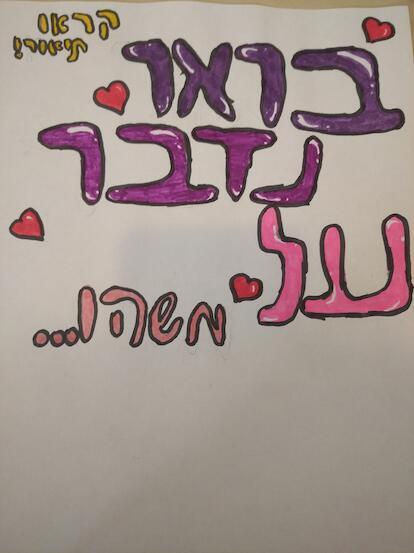 קראו
תיאור!
בואו
נדבר
על
משהו...